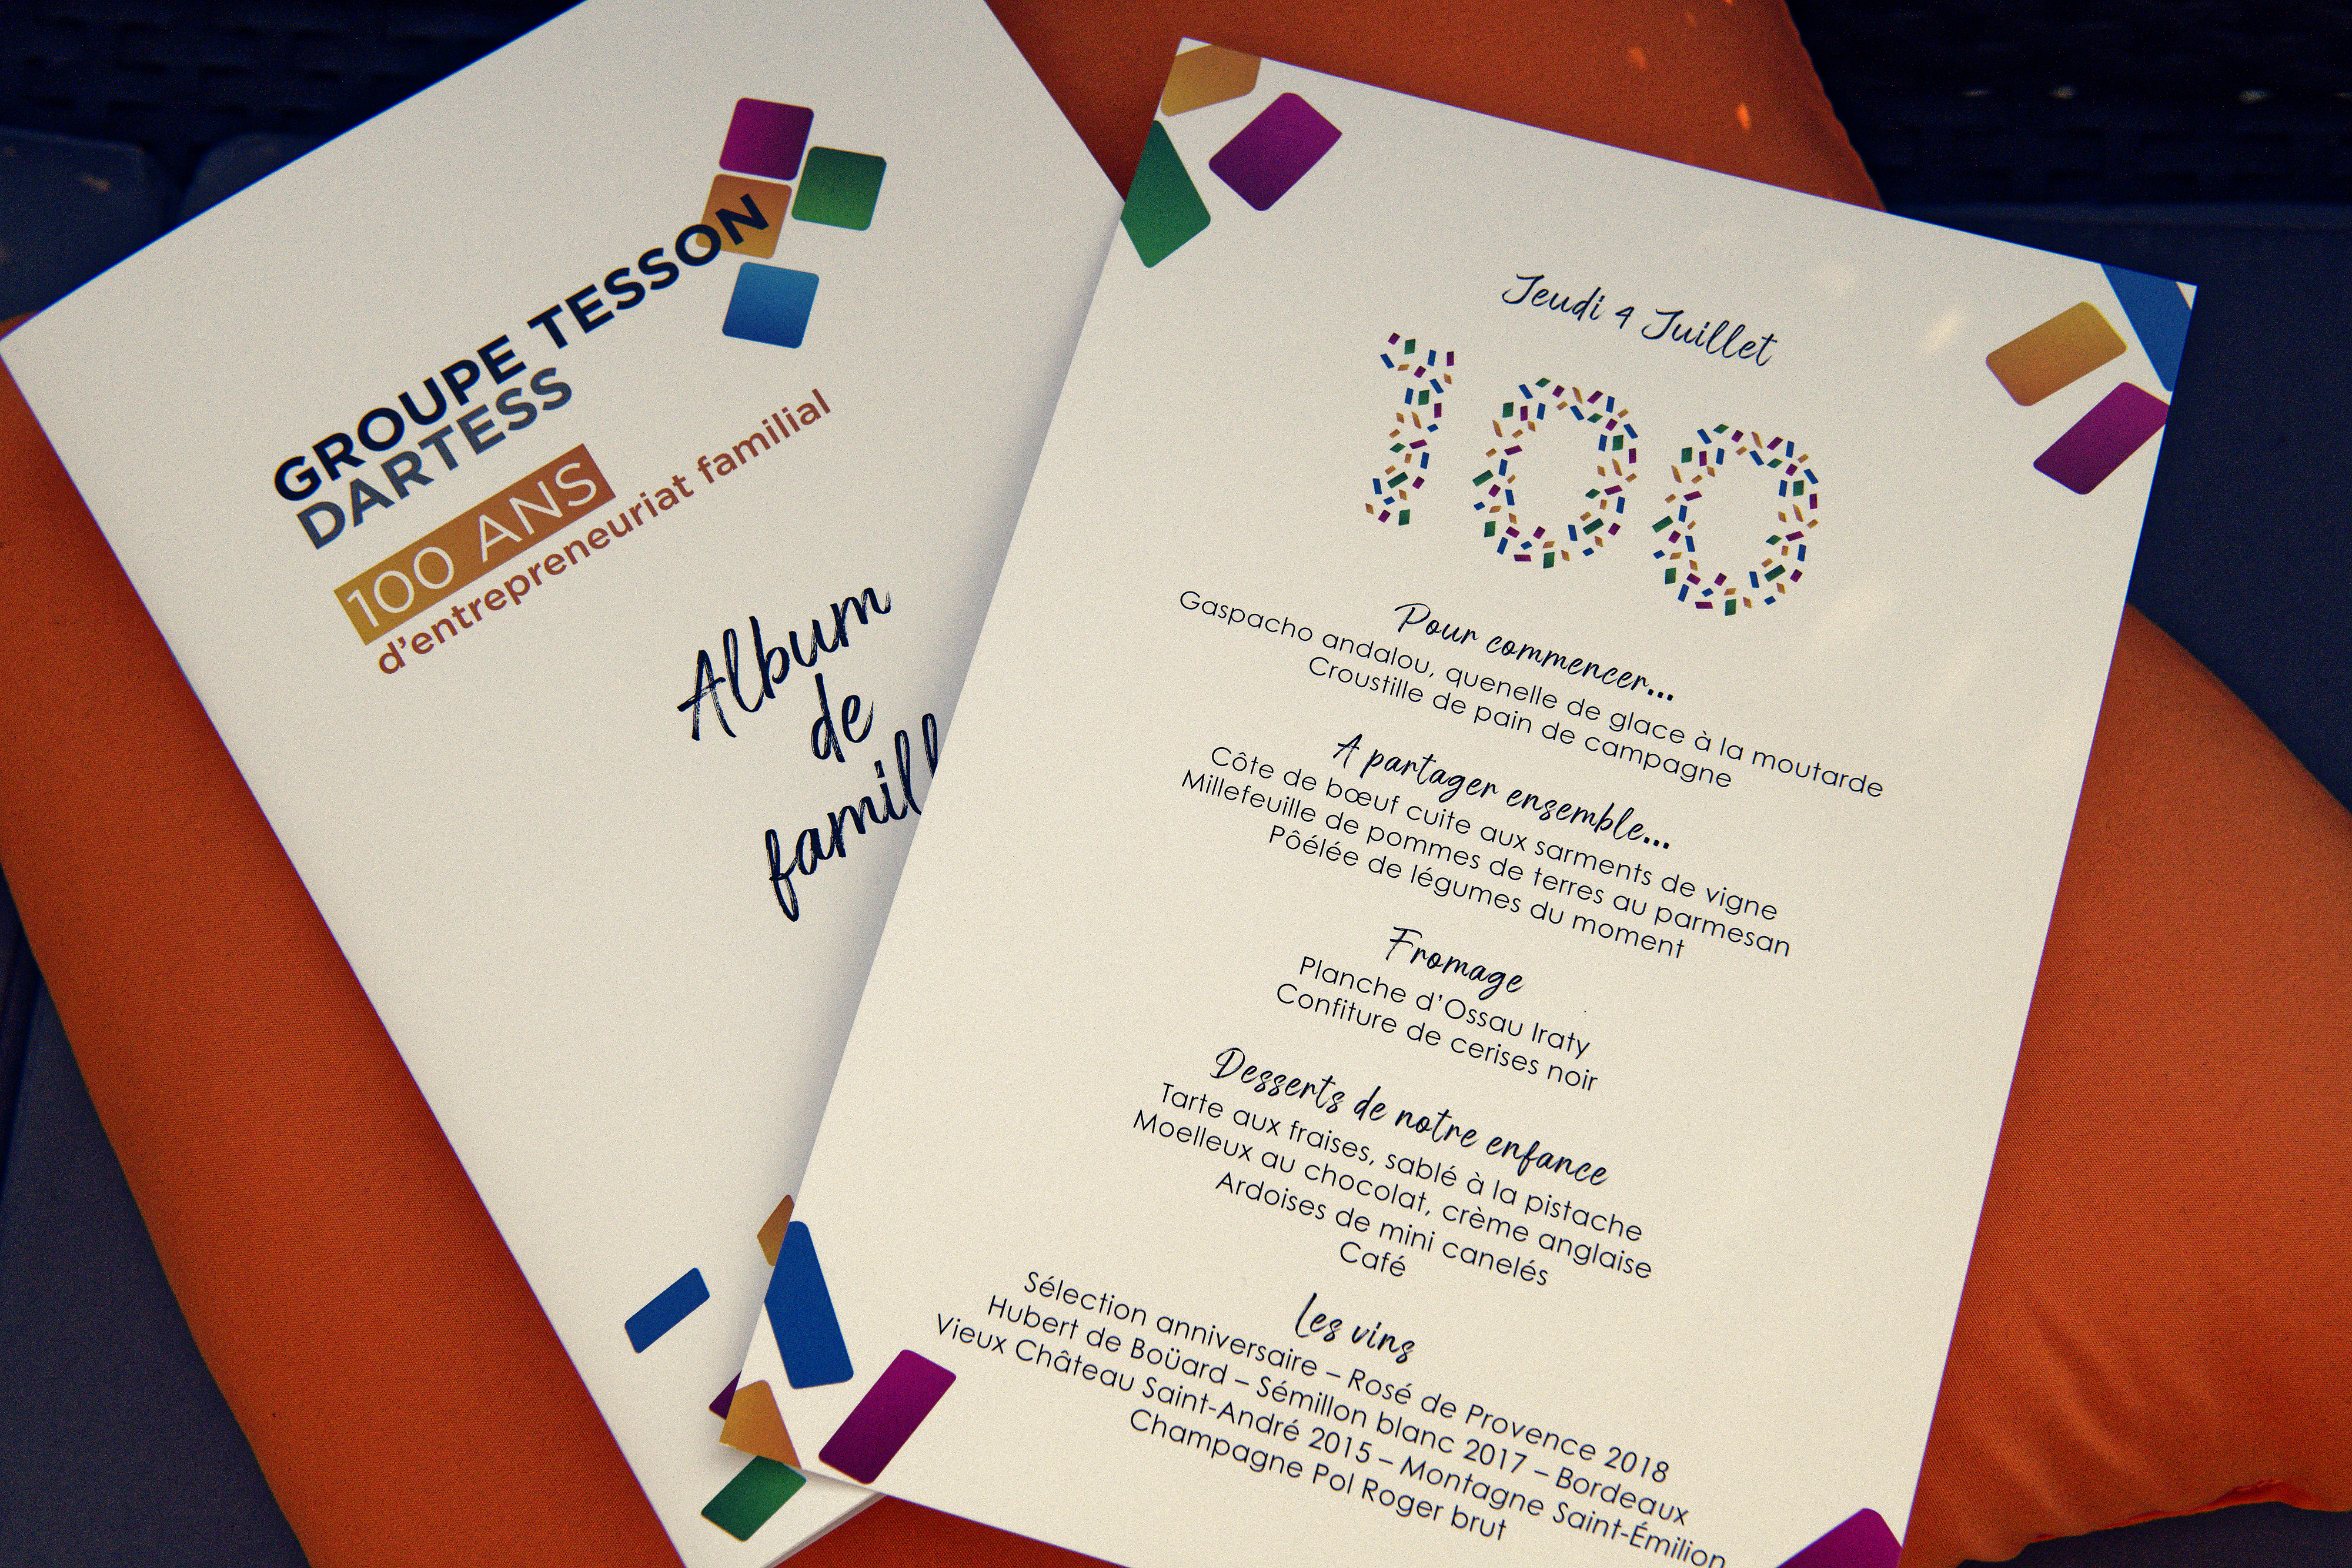 GROUPE TESSON
DARTESS
100 ANS
d'entrepreneuriat familial
Album
de
famill
Jeudi 4 Juillet
100
Pour commencer...
Gaspacho andalou, quenelle de glace à la moutarde
Croustille de pain de campagne
A partager ensemble...
Côte de bœuf cuite aux sarments de vigne
Millefeuille de pommes de terres au parmesan
Pôélée de légumes du moment
Fromage
Planche d'Ossau Iraty
Confiture de cerises noir
Desserts de notre enfance
Tarte aux fraises, sablé à la pistache
Moelleux au chocolat, crème anglaise
Ardoises de mini canelés
Café
Les vins
Sélection anniversaire – Rosé de Provence 2018
Hubert de Boüard – Sémillon blanc 2017 – Bordeaux
Vieux Château Saint-André 2015 – Montagne Saint-Émilion
Champagne Pol Roger brut